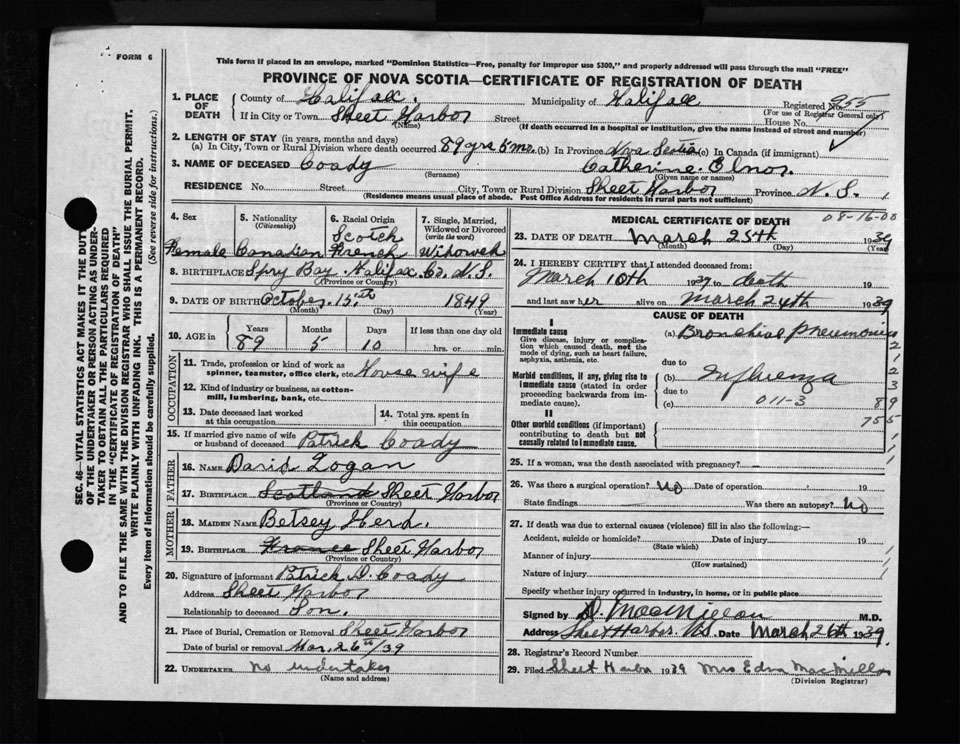 FORM 6
This form if placed in an envelope, marked "Dominion Statistics—Free, penalty for improper use $300," and properly addressed will pass through the mail "FREE"
PROVINCE OF NOVA SCOTIA—CERTIFICATE OF REGISTRATION OF DEATH
SEC. 46—VITAL STATISTICS ACT MAKES IT THE DUTY
OF THE UNDERTAKER OR PERSON ACTING AS UNDER-
TAKER TO OBTAIN ALL THE PARTICULARS REQUIRED
IN THE "CERTIFICATE OF REGISTRATION OF DEATH"
AND TO FILE THE SAME WITH THE DIVISION REGISTRAR WHO SHALL ISSUE THE BURIAL PERMIT.
WRITE PLAINLY WITH UNFADING INK. THIS IS A PERMANENT RECORD.
Every item of information should be carefully supplied. (See reverse side for instructions.)
1. PLACE OF DEATH County of Halifax. Municipality of Halifax Registered No. 955
(For use of Registrar General only)
If in City or Town Sheet Harbor Street House No.
(Name) (If death occurred in a hospital or institution, give the name instead of street and number)
2. LENGTH OF STAY (in years, months and days)
(a) In City, Town or Rural Division where death occurred 89 yrs 5 mo. (b) In Province Nova Scotia (c) In Canada (if immigrant)
3. NAME OF DECEASED Coady Catherine Elnor.
(Surname) (Given name or names)
RESIDENCE No. Street City, Town or Rural Division Sheet Harbor Province N. S.
(Residence means usual place of abode. Post Office Address for residents in rural parts not sufficient)
08-16-00
4. Sex 5. Nationality (Citizenship) 6. Racial Origin 7. Single, Married, Widowed or Divorced (write the word)
Scotch
Female Canadian French Widowed
8. BIRTHPLACE Spry Bay Halifax Co. N.S.
(Province or Country)
9. DATE OF BIRTH October 15th 1849
(Month) (Day) (Year)
10. AGE in Years Months Days If less than one day old
89 5 10 hrs. or min.
OCCUPATION
11. Trade, profession or kind of work as spinner, teamster, office clerk, etc. House wife
12. Kind of industry or business, as cotton-mill, lumbering, bank, etc.
13. Date deceased last worked at this occupation 14. Total yrs. spent in this occupation
15. If married give name of wife or husband of deceased Patrick Coady
FATHER
16. NAME David Logan
17. BIRTHPLACE Scotland Sheet Harbor
(Province or Country)
MOTHER
18. MAIDEN NAME Betsey Herd.
19. BIRTHPLACE France Sheet Harbor
(Province or Country)
20. Signature of informant Patrick D. Coady
Address Sheet Harbor
Relationship to deceased Son.
21. Place of Burial, Cremation or Removal Sheet Harbor
Date of burial or removal Mar. 26th/39
22. UNDERTAKER No undertaker
(Name and address)
MEDICAL CERTIFICATE OF DEATH
23. DATE OF DEATH March 25th 1939
(Month) (Day) (Year)
24. I HEREBY CERTIFY that I attended deceased from:
March 10th 1939 to death 19
and last saw her alive on March 24th 1939
CAUSE OF DEATH
I
Immediate cause
Give disease, injury or complication which caused death, not the mode of dying, such as heart failure, asphyxia, asthenia, etc.
(a) Bronchial Pneumonia
due to
Morbid conditions, if any, giving rise to immediate cause (stated in order proceeding backwards from immediate cause).
(b) Influenza
due to
(c) 011-3
II
Other morbid conditions (if important) contributing to death but not causally related to immediate cause.
25. If a woman, was the death associated with pregnancy?
26. Was there a surgical operation? No Date of operation 19
State findings Was there an autopsy? No
27. If death was due to external causes (violence) fill in also the following:—
Accident, suicide or homicide? Date of injury 19
(State which)
Manner of injury
(How sustained)
Nature of injury
Specify whether injury occurred in industry, in home, or in public place
Signed by D. MacMillan M.D.
Address Sheet Harbor. N.S. Date March 26th 1939.
28. Registrar's Record Number
29. Filed Sheet Harbor 1939 Mrs Edna MacMillan
(Division Registrar)